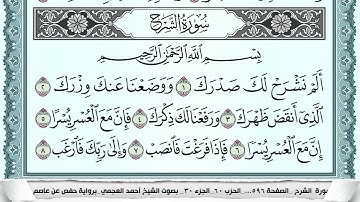 سُورَةُ الشَّرۡحِ
بِسۡمِ ٱللَّهِ ٱلرَّحۡمَٰنِ ٱلرَّحِيمِ
أَلَمۡ نَشۡرَحۡ لَكَ صَدۡرَكَ ١ وَوَضَعۡنَا عَنكَ وِزۡرَكَ ٢
ٱلَّذِيٓ أَنقَضَ ظَهۡرَكَ ٣ وَرَفَعۡنَا لَكَ ذِكۡرَكَ ٤ فَإِنَّ مَعَ ٱلۡعُسۡرِ يُسۡرًا ٥
إِنَّ مَعَ ٱلۡعُسۡرِ يُسۡرٗا ٦ فَإِذَا فَرَغۡتَ فَٱنصَبۡ ٧ وَإِلَىٰ رَبِّكَ فَٱرۡغَب ٨
ورة الشرح _الصفحة ٥٩٦... الحزب ٦٠_ الجزء ٣٠ _ بصوت الشيخ احمد العجمي برواية حفص عن عاصم